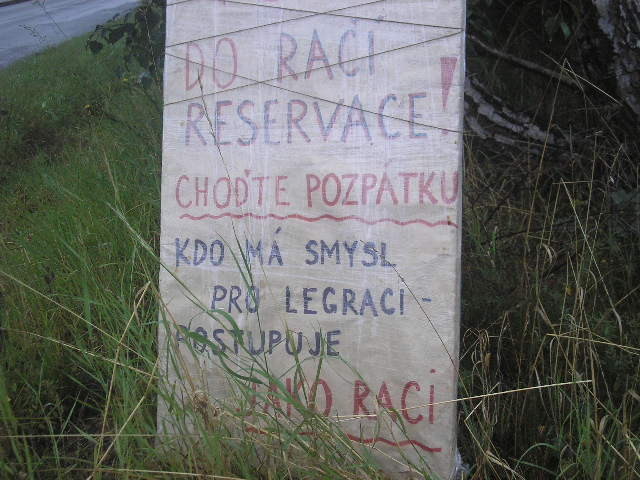 DO RAČÍ
RESERVACE!
CHOĎTE POZPÁTKU
KDO MÁ SMYSL
PRO LEGRACI -
POSTUPUJE
JAKO RACÍ